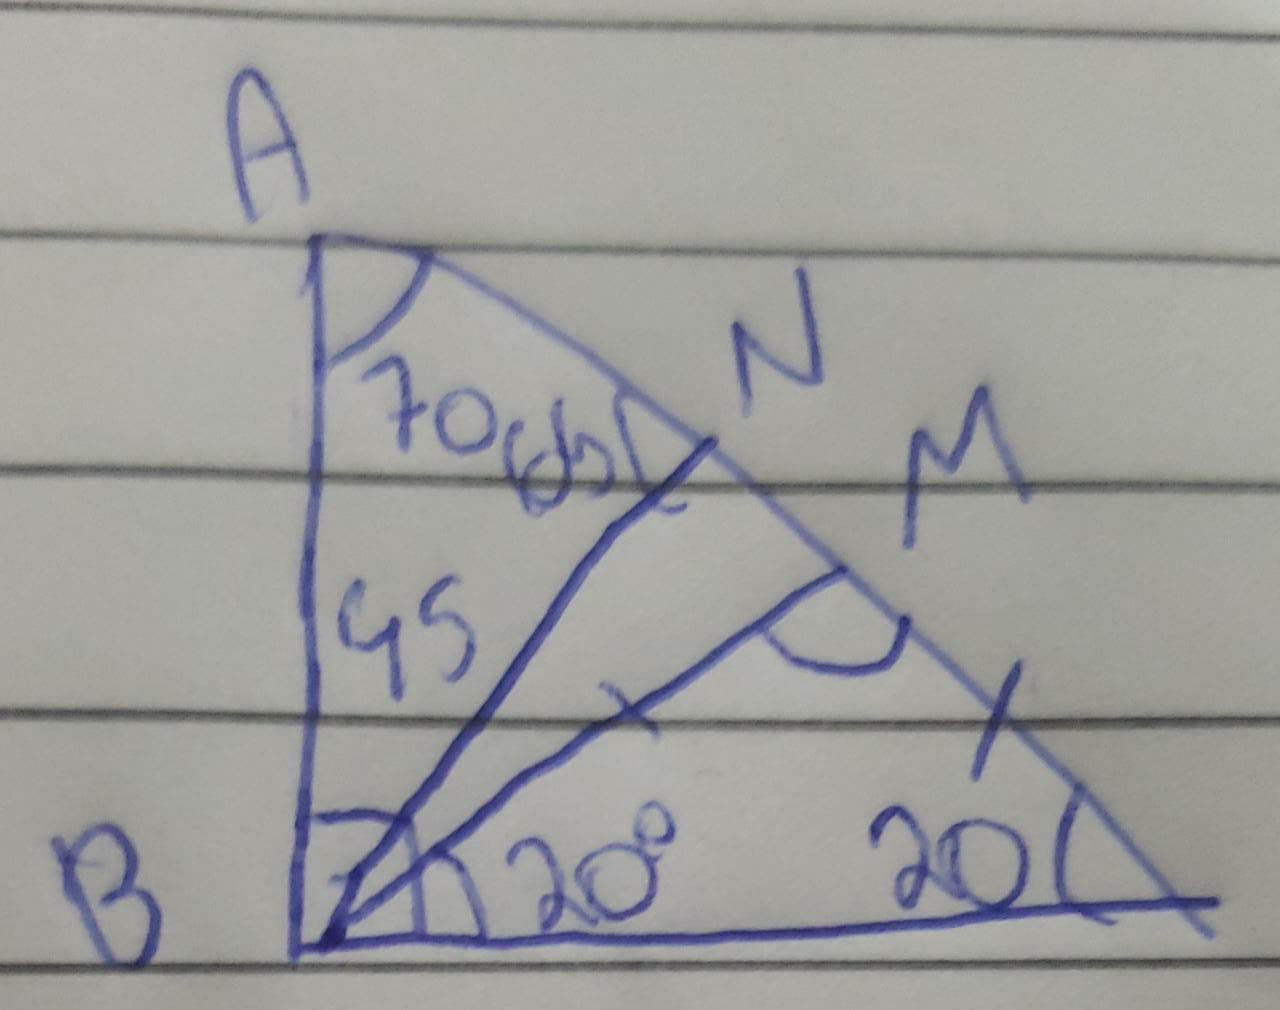 A
N
M
70
65
45
B
20°
20